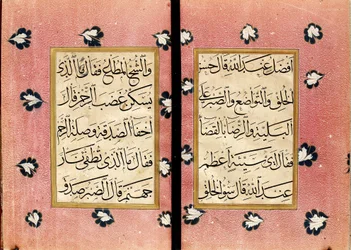 افضل عند الله قال حسن
الخلق والتواضع والصبر على
البلية والرضاء بالقضاء
فقال اي سيئة اعظم
عند الله قال سوء الخلق
والشح المطاع فقال ما الذي
يسكن غضب الرحمن قال
اخفاء الصدقة وصلة الرحم
فقال ما الذي يطفئ نار
جهنم قال الصبر